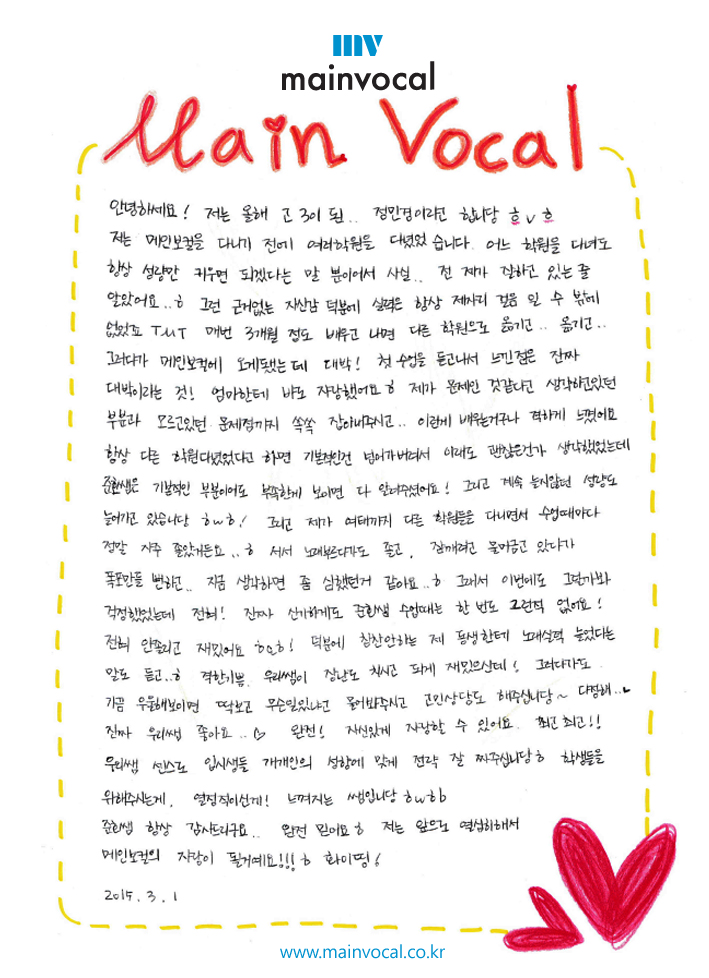 mv
mainvocal
Main Vocal
안녕하세요! 저는 올해 고3이 된.. 정민경이라고 합니당 ㅎvㅎ
저는 메인보컬을 다니기 전에 여러학원을 다녔었습니다. 어느 학원을 다녀도
항상 성량만 키우면 되겠다는 말 뿐이어서 사실.. 전 제가 잘하고 있는 줄
알았어요..ㅎ 그런 근거없는 자신감 덕분에 실력은 항상 제자리 걸음 일 수 밖에
없었죠 TMT 매번 3개월 정도 배우고 나면 다른 학원으로 옮기고.. 옮기고..
그러다가 메인보컬에 오게됐는데 대박! 첫수업을 듣고나서 느낀점은 진짜
대박이라는 것! 엄마한테 바로 자랑했어요ㅎ 제가 문제인 것같다고 생각하고있던
부분과 모르고있던 문제점까지 쏙쏙 잡아내주시고.. 이런게 배우는거구나 격하게 느꼈어요
항상 다른 학원다녔었다고 하면 기본적인건 넘어가버려서 이래도 괜찮은건가 생각했었는데
준화쌤은 기본적인 부분이어도 부족한게 보이면 다 알려주셨어요! 그리고 계속 늘지않던 성량도
늘어가고 있습니당 ㅎwㅎ! 그리고 제가 여태까지 다른 학원들을 다니면서 수업때마다
정말 자주 졸았거든요..ㅎ 서서 노래부르다가도 졸고, 잠깨려고 물머금고 있다가
폭포만들 뻔하고.. 지금 생각하면 좀 심했던거 같아요..ㅎ 그래서 이번에도 그런가봐
걱정했었는데 전혀! 진짜 신기하게도 준화쌤 수업때는 한 번도 그런적 없어요!
전혀 안졸리고 재밌어요 ㅎoㅎ! 덕분에 칭찬안하는 제 동생한테 노래실력 늘었다는
말도 듣고..ㅎ 격한기쁨. 우리쌤이 장난도 치시고 되게 재밌으신데! 그러다가도
가끔 우울해보이면 딱보고 무슨일있냐고 물어봐주시고 고민상담도 해주십니당~ 다정해..
진짜 우리쌤 좋아요..♡ 완전! 자신있게 자랑할 수 있어요. 최고최고!!
우리쌤 센스로 입시생들 개개인의 성향에 맞게 전략 잘 짜주십니당ㅎ 학생들을
위해주시는게, 열정적이신게! 느껴지는 쌤입니당 ㅎwㅎb
준화쌤 항상 감사드리구요.. 완전 믿어요ㅎ 저는 앞으로 열심히해서
메인보컬의 자랑이 될거예요!!!ㅎ 화이띵!
2015. 3. 1
www.mainvocal.co.kr